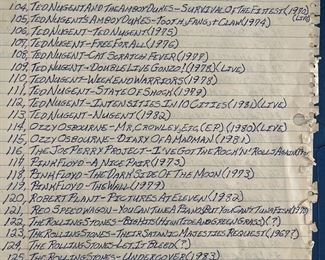 104, TED NUGENT AND THE AMBOY DUKES - SURVIVAL OF THE FITTEST (1970) (LIVE)
105, TED NUGENT'S AMBOY DUKES - TOOTH, FANG, & CLAW (1974)
106, TED NUGENT - TED NUGENT (1975)
107, TED NUGENT - FREE FOR ALL (1976)
108, TED NUGENT - CAT SCRATCH FEVER (1977)
109, TED NUGENT - DOUBLE LIVE GONZO! (1978) (LIVE)
110, TED NUGENT - WEEKEND WARRIORS (1978)
111, TED NUGENT - STATE OF SHOCK (1979)
112, TED NUGENT - INTENSITIES IN 10 CITIES (1981) (LIVE)
113, TED NUGENT - NUGENT (1982)
114, OZZY OSBOURNE - MR. CROWLEY, ETC, (EP) (1980) (LIVE)
115, OZZY OSBOURNE - DIARY OF A MADMAN (1981)
116, THE JOE PERRY PROJECT - I'VE GOT THE ROCK'N'ROLLS AGAIN
117, PINK FLOYD - A NICE PAIR (1973)
118, PINK FLOYD - THE DARK SIDE OF THE MOON (1973)
119, PINK FLOYD - THE WALL (1979)
120, ROBERT PLANT - PICTURES AT ELEVEN (1982)
121, REO SPEEDWAGON - YOU CAN TUNE A PIANO, BUT YOU CAN'T TUNA FISH (1978)
122, THE ROLLING STONES - BIG HITS (HIGH TIDE AND GREEN GRASS) (?)
123, THE ROLLING STONES - THEIR SATANIC MAJESTIES REQUEST (1967?)
124, THE ROLLING STONES - LET IT BLEED (?)
125, THE ROLLING STONES - UNDERCOVER (1983)